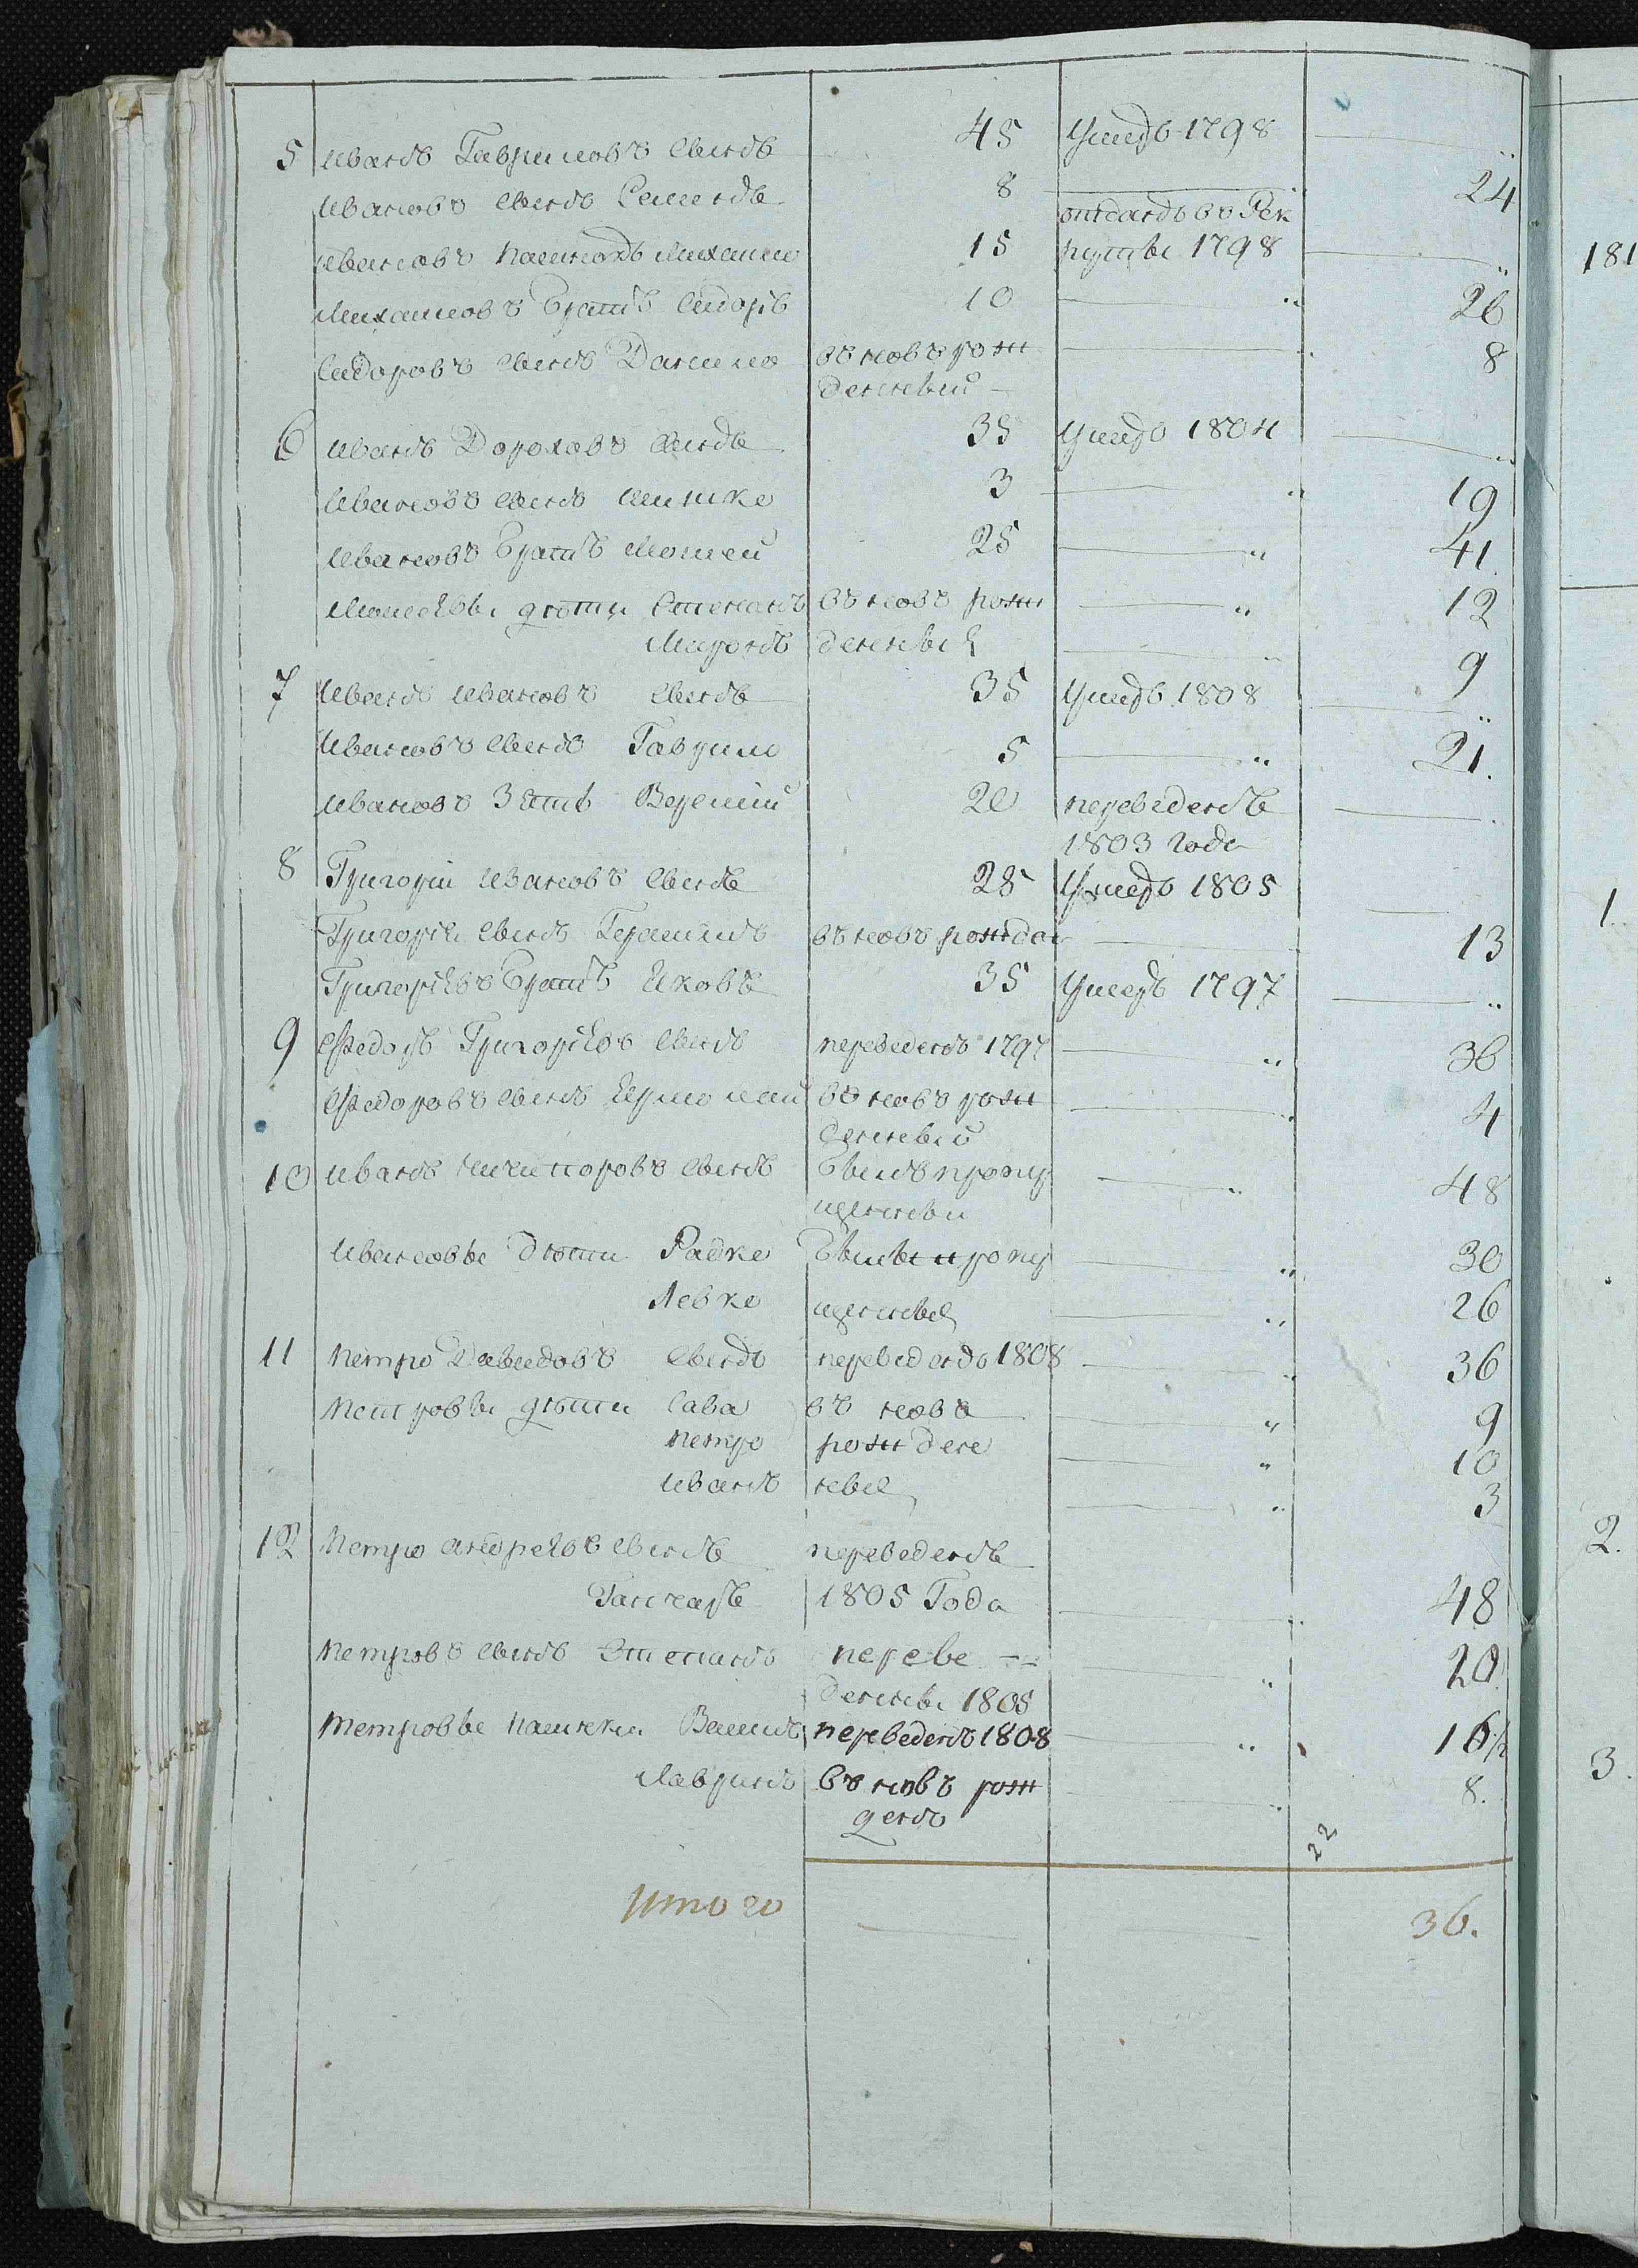 5 Иванъ Гаврыловъ сынъ 45 умеръ 1798 "
Ивановъ сынъ Семенъ 8 24
отданъ въ Рек
Ивановъ пасынокъ Михайло 15 руты 1798 "
Михайловъ братъ Сидоръ 10 " 26
Сидоровъ сынъ Данило въ новъ рож 8
денный
6 Иванъ Дороховъ сынъ 35 умеръ 1804 "
Ивановъ сынъ 3 " 19
Ивановъ братъ Мойсей 25 " 41
Мойсеѣвы дѣти Степанъ въ новъ рож " 12
Миронъ денныѣ " 9
7 Иванъ Ивановъ сынъ 35 умеръ 1808 "
Ивановъ сынъ Гаврило 5 " 21.
Ивановъ зять 20 переведенъ
1803 года
8 Григорій Ивановъ сынъ 28 умеръ 1805
Григоріѣ сынъ Герасимъ въ новъ рожден 13
Григоріѣвъ братъ Яковъ 35 умеръ 1797 "
9 Федоръ Григоріѣвъ сынъ переведенъ 1797 " 36
Федоровъ сынъ Ермолай въ новъ рож 4
денный
10 Иванъ Никифоровъ сынъ былъ пропу " 48
щенны
Ивановы дѣти Радко были пропу " 30
Левко щенны " 26
11 Петро Давидовъ сынъ переведенъ 1808 " 36
Петровы дѣти Сава въ новъ " 9
Петро рожден " 10
Иванъ ные " 3
12 Петро Андреѣвъ сынъ переведенъ
Ганчаръ 1805 Года " 48
Петровъ сынъ Степанъ переве -- " 20
денны 1805
Петровы пасынки Василь переведенъ 1808 " 16 1/2
Лавринъ въ новъ рож " 8.
денъ
22
Итого 36.
181
1.
2.
3.